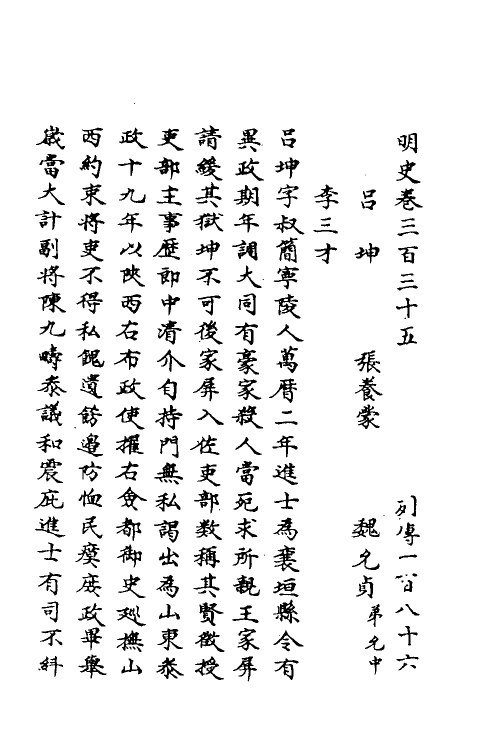 明史卷三百三十五 列傳一百八十六
呂坤 張養蒙 魏允貞 弟允中
李三才
呂坤字叔簡寧陵人萬曆二年進士為襄垣縣令有
異政期年調大同有豪家殺人當死求所親王家屏
請緩其獄坤不可後家屏入佐吏部数稱其賢徵授
吏部主事歷郎中清介自持門無私謁出為山東叅
政十九年以陝西右布政使擢右僉都御史廵撫山
西約束將吏不得私餽遺飭邉防恤民瘼庶政畢舉
歲當大計副將陳九疇叅議和震庇進士有司不糾